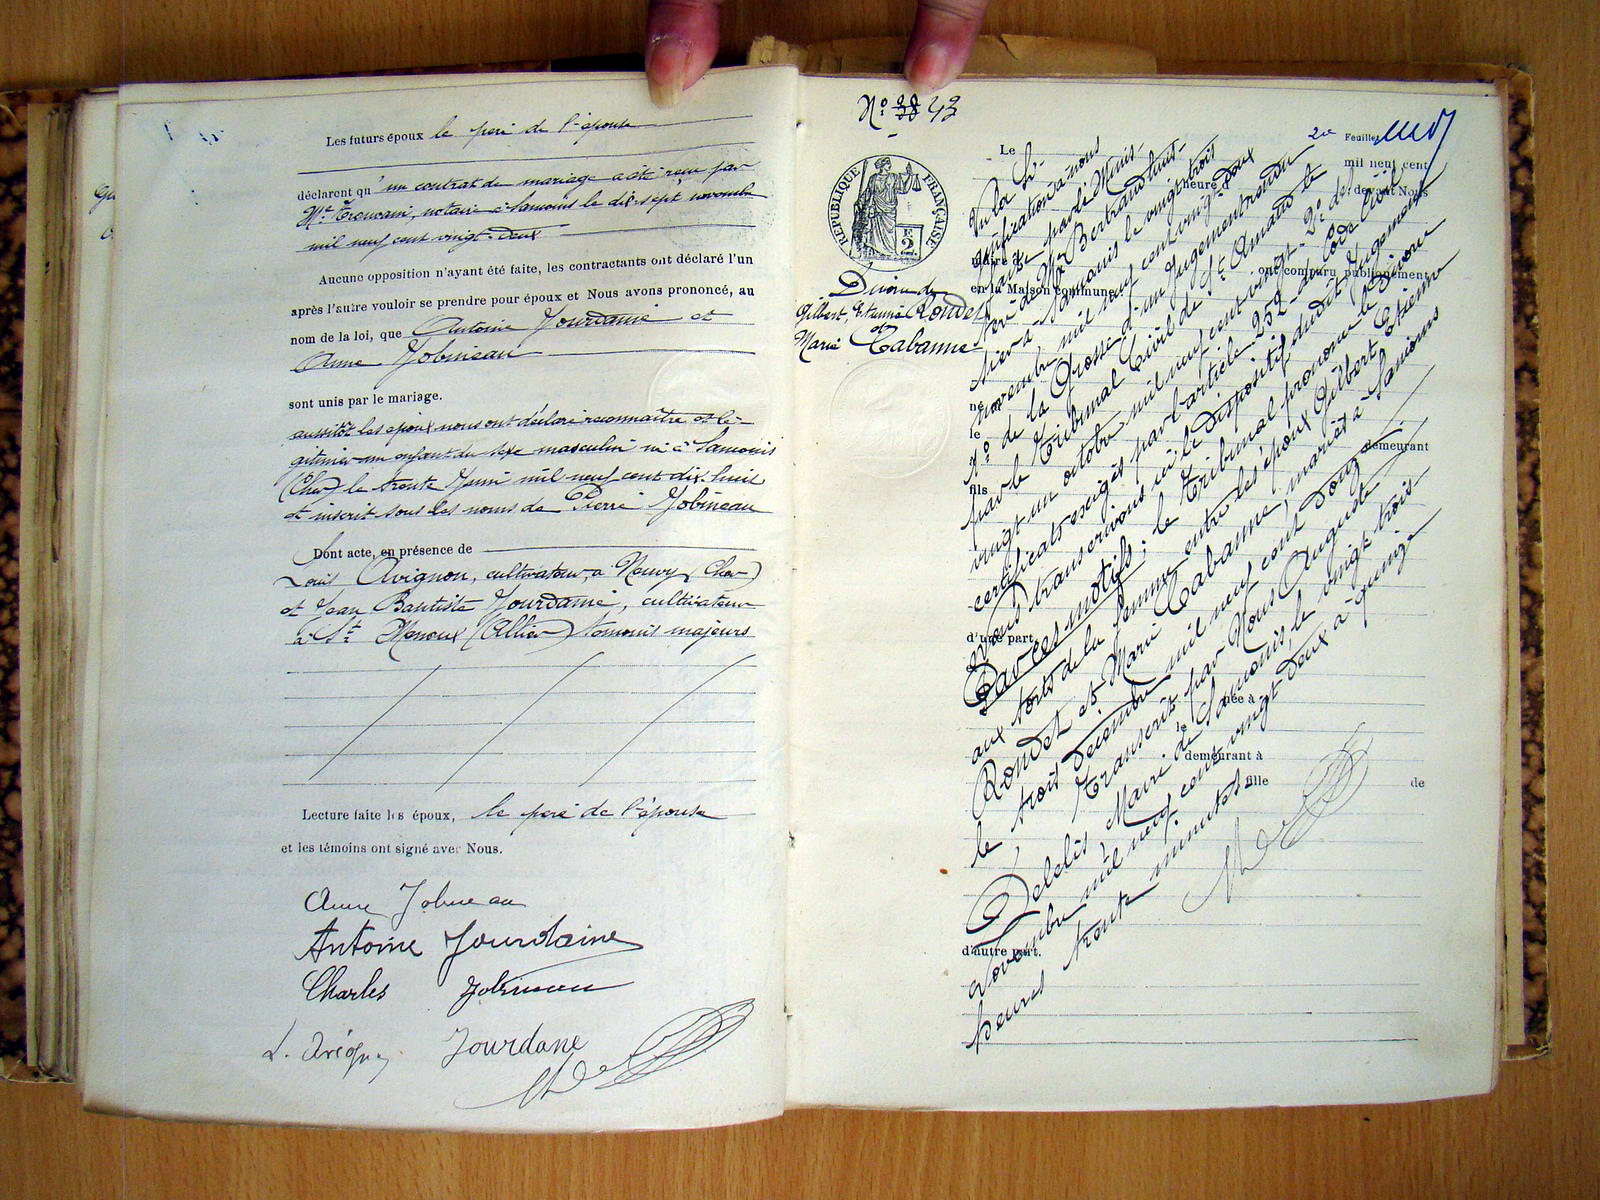 Les futurs époux le père de l'épouse
déclarent qu'un contrat de mariage a été reçu par
notaire à Sancoins le dix sept novembre
mil neuf cent vingt-deux
Aucune opposition n'ayant été faite, les contractants ont déclaré l'un
après l'autre vouloir se prendre pour époux et Nous avons prononcé, au
nom de la loi, que Antoine Jourdaine et
Anne Jobineau
sont unis par le mariage.
aussitôt les époux nous ont déclaré reconnaître et lé-
gitimer un enfant du sexe masculin né à Sancoins
(Cher) le trente mil neuf cent dix-huit
et inscrit sous les noms de Pierre Jobineau
Dont acte, en présence de
Louis Avignon, cultivateur, à Neuvy (Cher)
et Jean Baptiste Jourdaine, cultivateur
à St Menoux (Allier) témoins majeurs
Lecture faite les époux, le père de l'épouse
et les témoins ont signé avec Nous.
Anne Jobineau
Antoine Jourdaine
Charles Jobineau
L. Avignon Jourdane
N° 38 43
RÉPUBLIQUE FRANÇAISE
2
Divorce de
Gilbert, Etienne Rondet
et
Marie Cabanne
Feuillet
Le
mil neuf cent
heure
devant Nous
maire
ont comparu publiquement
en la Maison commune
né
le
demeurant
fils
d'une part
née à
le
demeurant à
fille
de
d'autre part.
Vu la Si-
gnification à nous
faite par le Minis-
tère de Me Bertrand huis-
sier à Sancoins le vingt trois
novembre mil neuf cent vingt deux
1° de la Grosse d'un Jugement rendu
par le Tribunal Civil de St Amand le
vingt un octobre mil neuf cent vingt 2° des
certificats exigés par l'article 252 du Code Civil
Nous transcrivons ici le dispositif dudit Jugement
Par ces motifs; le Tribunal prononce le Divorce
aux torts de la femme entre les époux Gilbert Etienne
Rondet et Marie Cabanne, mariés à Sancoins
le trois décembre mil neuf cent douze
Transcrit par Nous Auguste
Delelis, Maire de Sancoins, le vingt trois
Novembre mil neuf cent vingt deux à quinze
heures trente minutes.